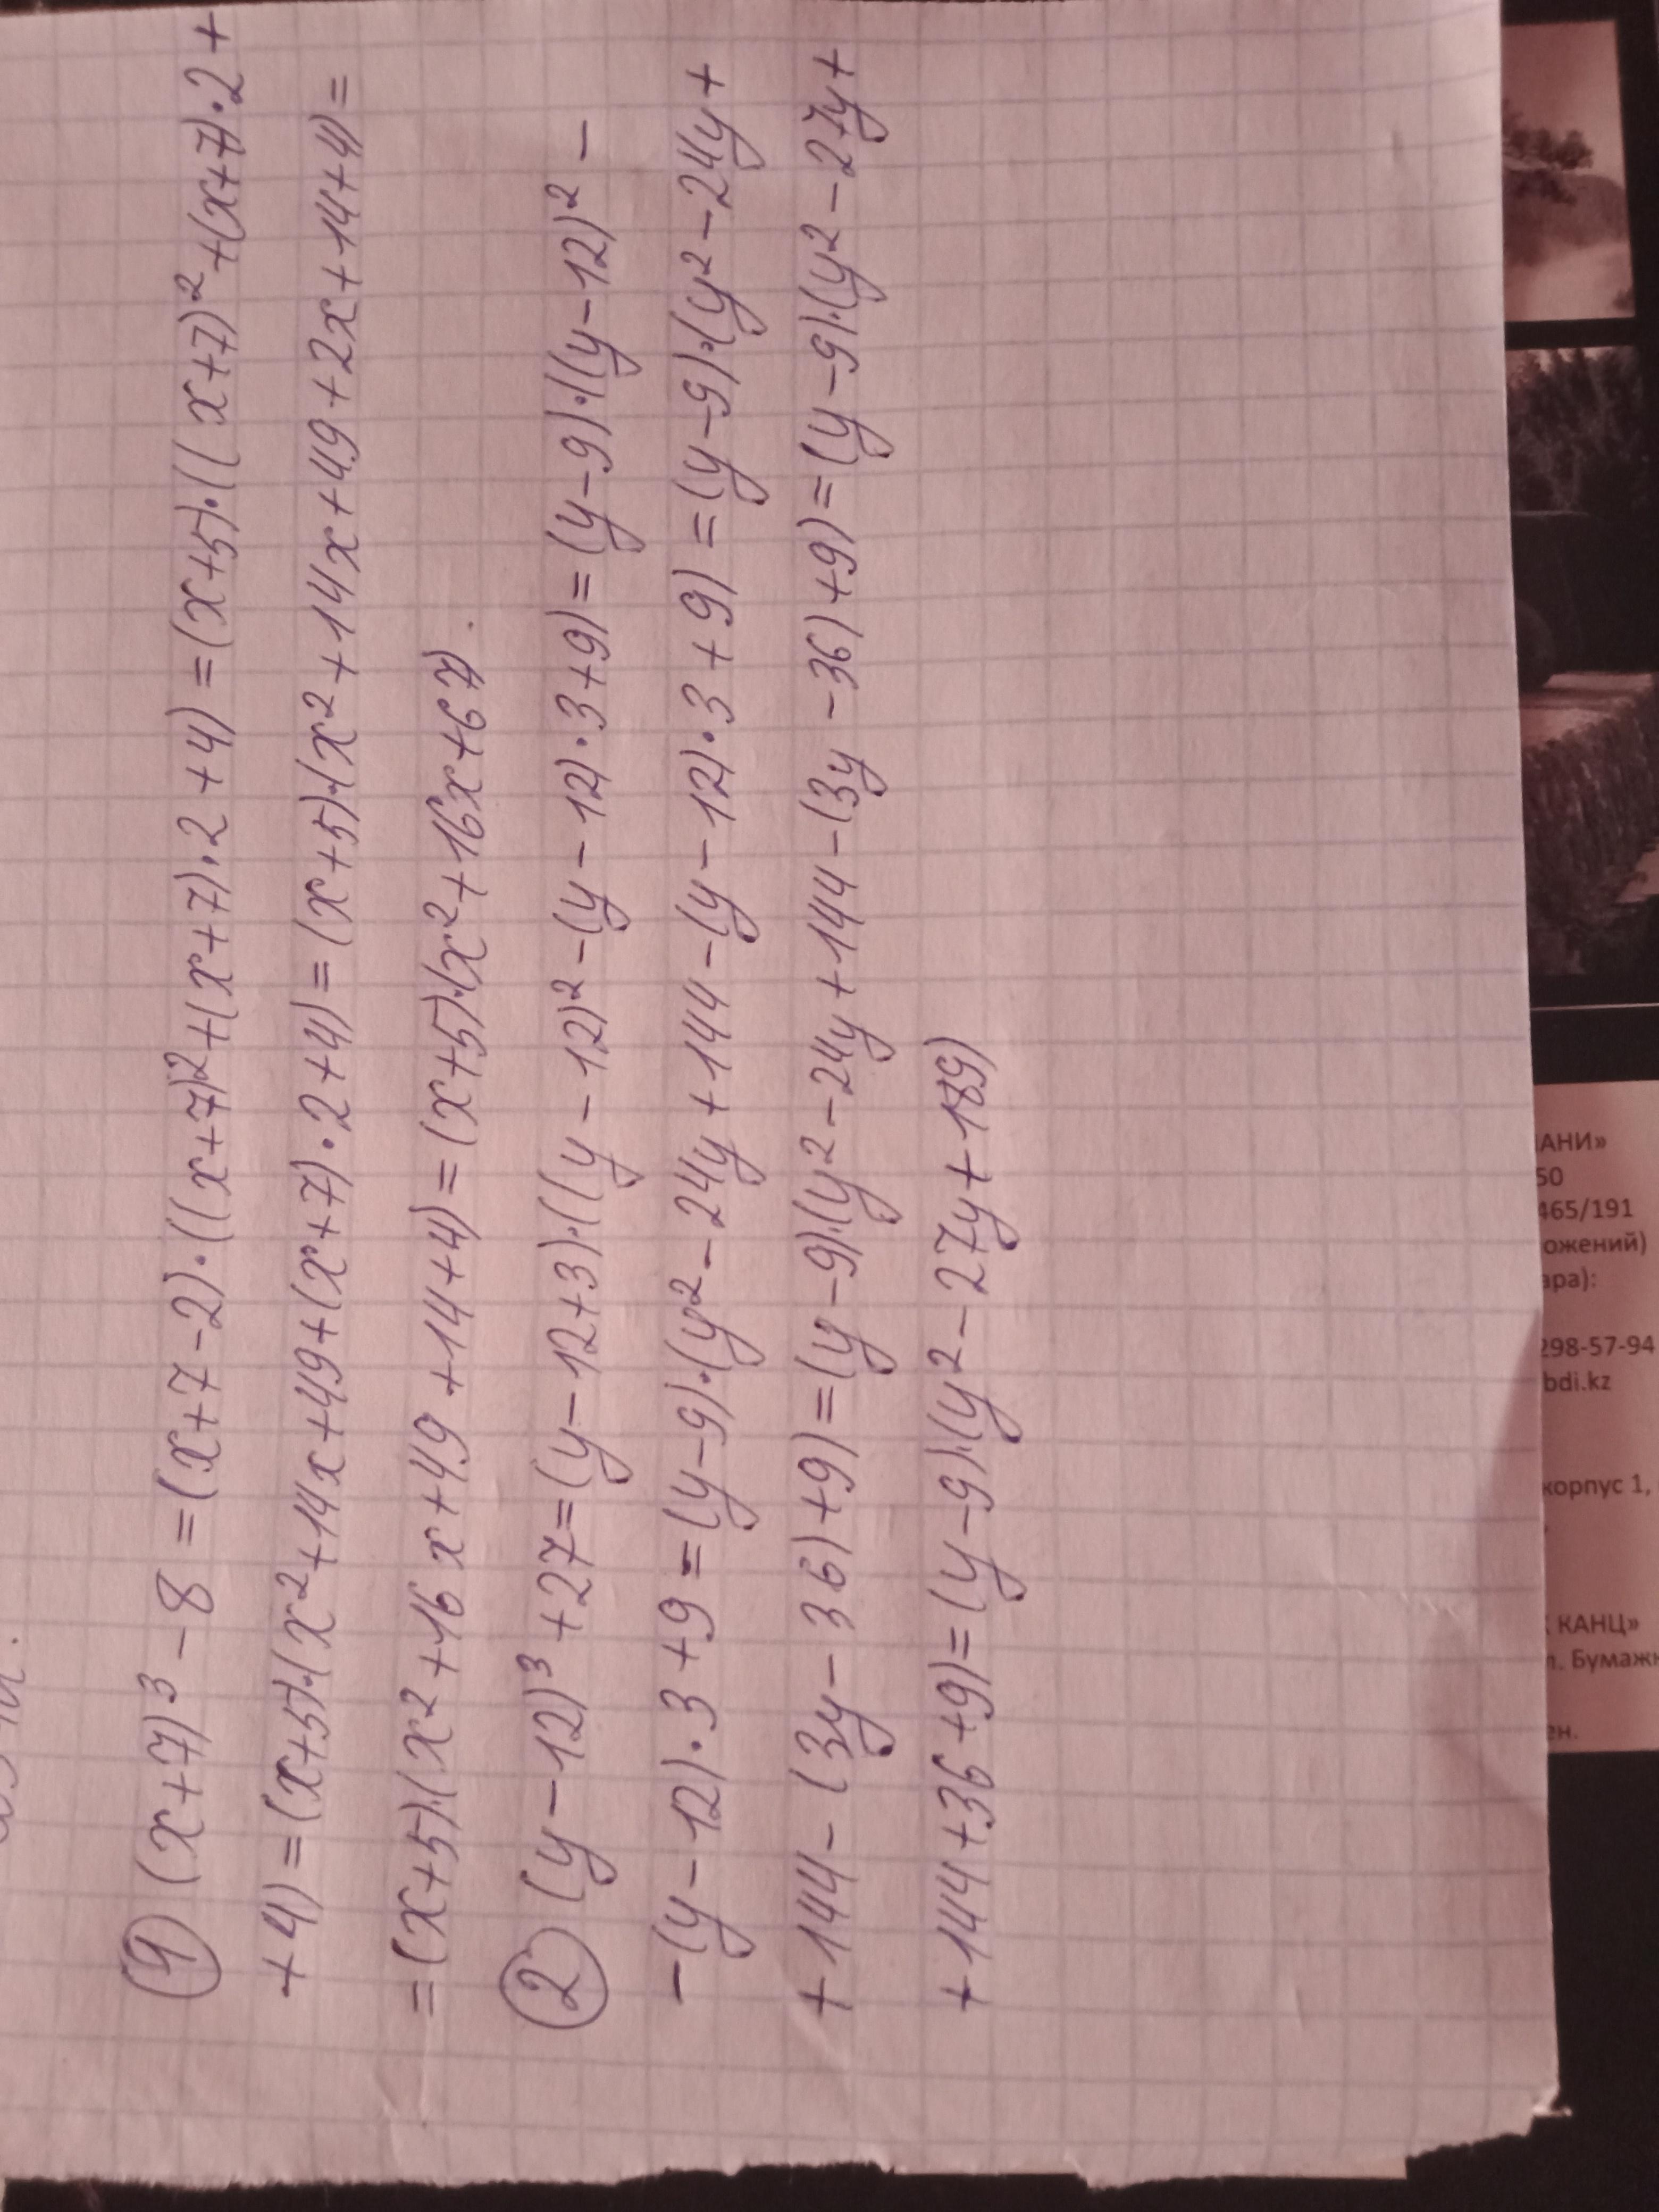 ① (x+7)³ - 8 = (x+7-2)·((x+7)²+(x+7)·2+4) = (x+5)·((x+7)²+(x+7)·2+
+4) = (x+5)·(x²+14x+49+(x+7)·2+4) = (x+5)·(x²+14x+49+2x+14+4) =
= (x+5)·(x²+16x+49+14+4) = (x+5)·(x²+16x+67).
② (y-12)³+27=(y-12+3)·((y-12)²-(y-12)·3+9)=(y-9)·((y-12)²-
-(y-12)·3+9=(y-9)·(y²-24y+144-(y-12)·3+9)=(y-9)·(y²-24y+
+144-(3y-36)+9)=(y-9)·(y²-24y+144-(3y-36)+9)=(y-9)·(y²-27y+
+144+36+9)=(y-9)·(y²-27y+189)
АНИ»
50
465/191
ожений)
ара):
298-57-94
bdi.kz
корпус 1,
КАНЦ»
л. Бумажн
ен.